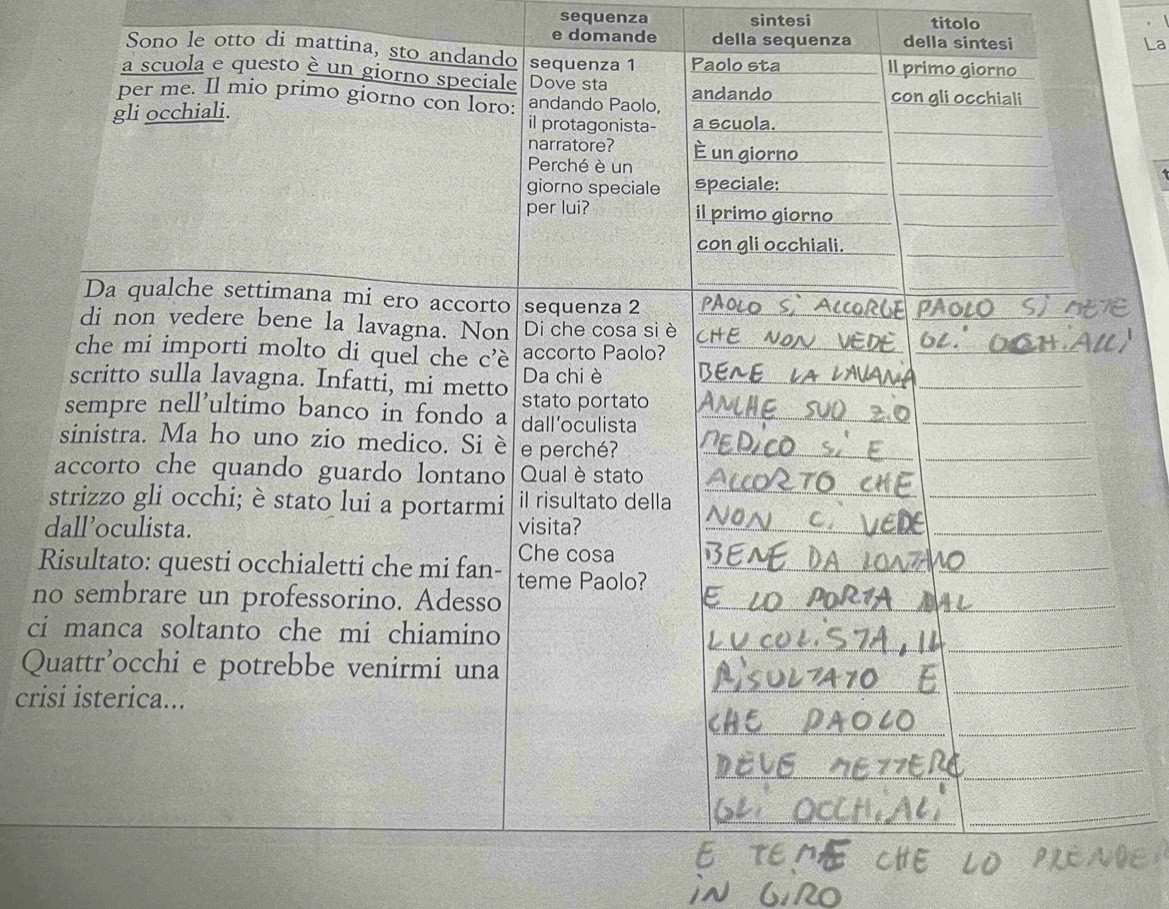 sequenza
e domande
sintesi
della sequenza
titolo
della sintesi
La
Sono le otto di mattina, sto andando
a scuola e questo è un giorno speciale
per me. Il mio primo giorno con loro:
gli occhiali.
sequenza 1
Dove sta
andando Paolo,
il protagonista-
narratore?
Perché è un
giorno speciale
per lui?
Paolo sta
andando
a scuola.
È un giorno
speciale:
il primo giorno
con gli occhiali.
Il primo giorno
con gli occhiali
Da qualche settimana mi ero accorto
di non vedere bene la lavagna. Non
che mi importi molto di quel che c'è
scritto sulla lavagna. Infatti, mi metto
sempre nell'ultimo banco in fondo a
sinistra. Ma ho uno zio medico. Si è
accorto che quando guardo lontano
strizzo gli occhi; è stato lui a portarmi
dall'oculista.
Risultato: questi occhialetti che mi fan-
no sembrare un professorino. Adesso
ci manca soltanto che mi chiamino
Quattr'occhi e potrebbe venirmi una
crisi isterica...
sequenza 2
Di che cosa si è
accorto Paolo?
Da chi è
stato portato
dall'oculista
e perché?
Qual è stato
il risultato della
visita?
Che cosa
teme Paolo?
PAOLO Si ACCORGE
CHE NON VEDE
BENE LA LAVANA
ANCHE SUO ZiO
MEDiCO Si E
ACCORTO CHE
NON Ci VEDE
BENE DA LONTANO
E LO PORTA DAL
LUCOLiSTA, IL
RiSULTATO E
CHE PAOLO
DEVE METTERE
GLi OCCHiALi
E TEME CHE LO PRENDE
iN GiRO
PAOLO Si METE
GLi OCCHiALi